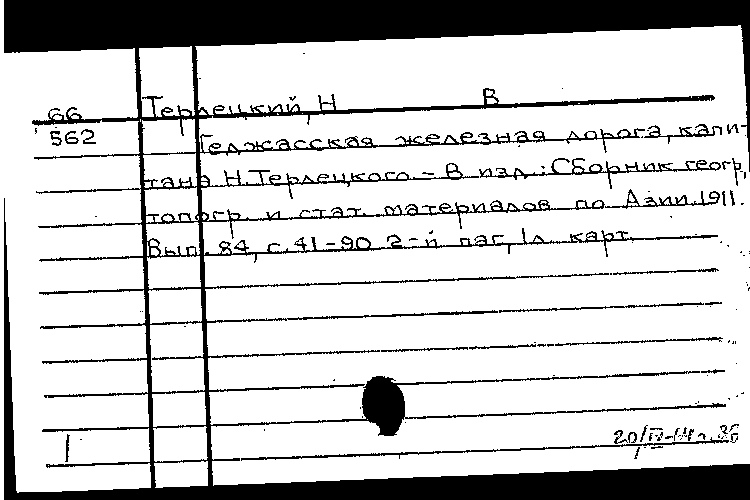 66 Терлецкий, Н В
562 Геджасская железная дорога, капи-
тана Н.Терлецкого. – В изд.: Сборник геогр,
топогр. и стат. материалов по Азии. 1911.
Вып. 84, с. 41-90 2-й паг, 1 л. карт.
1 20/IV